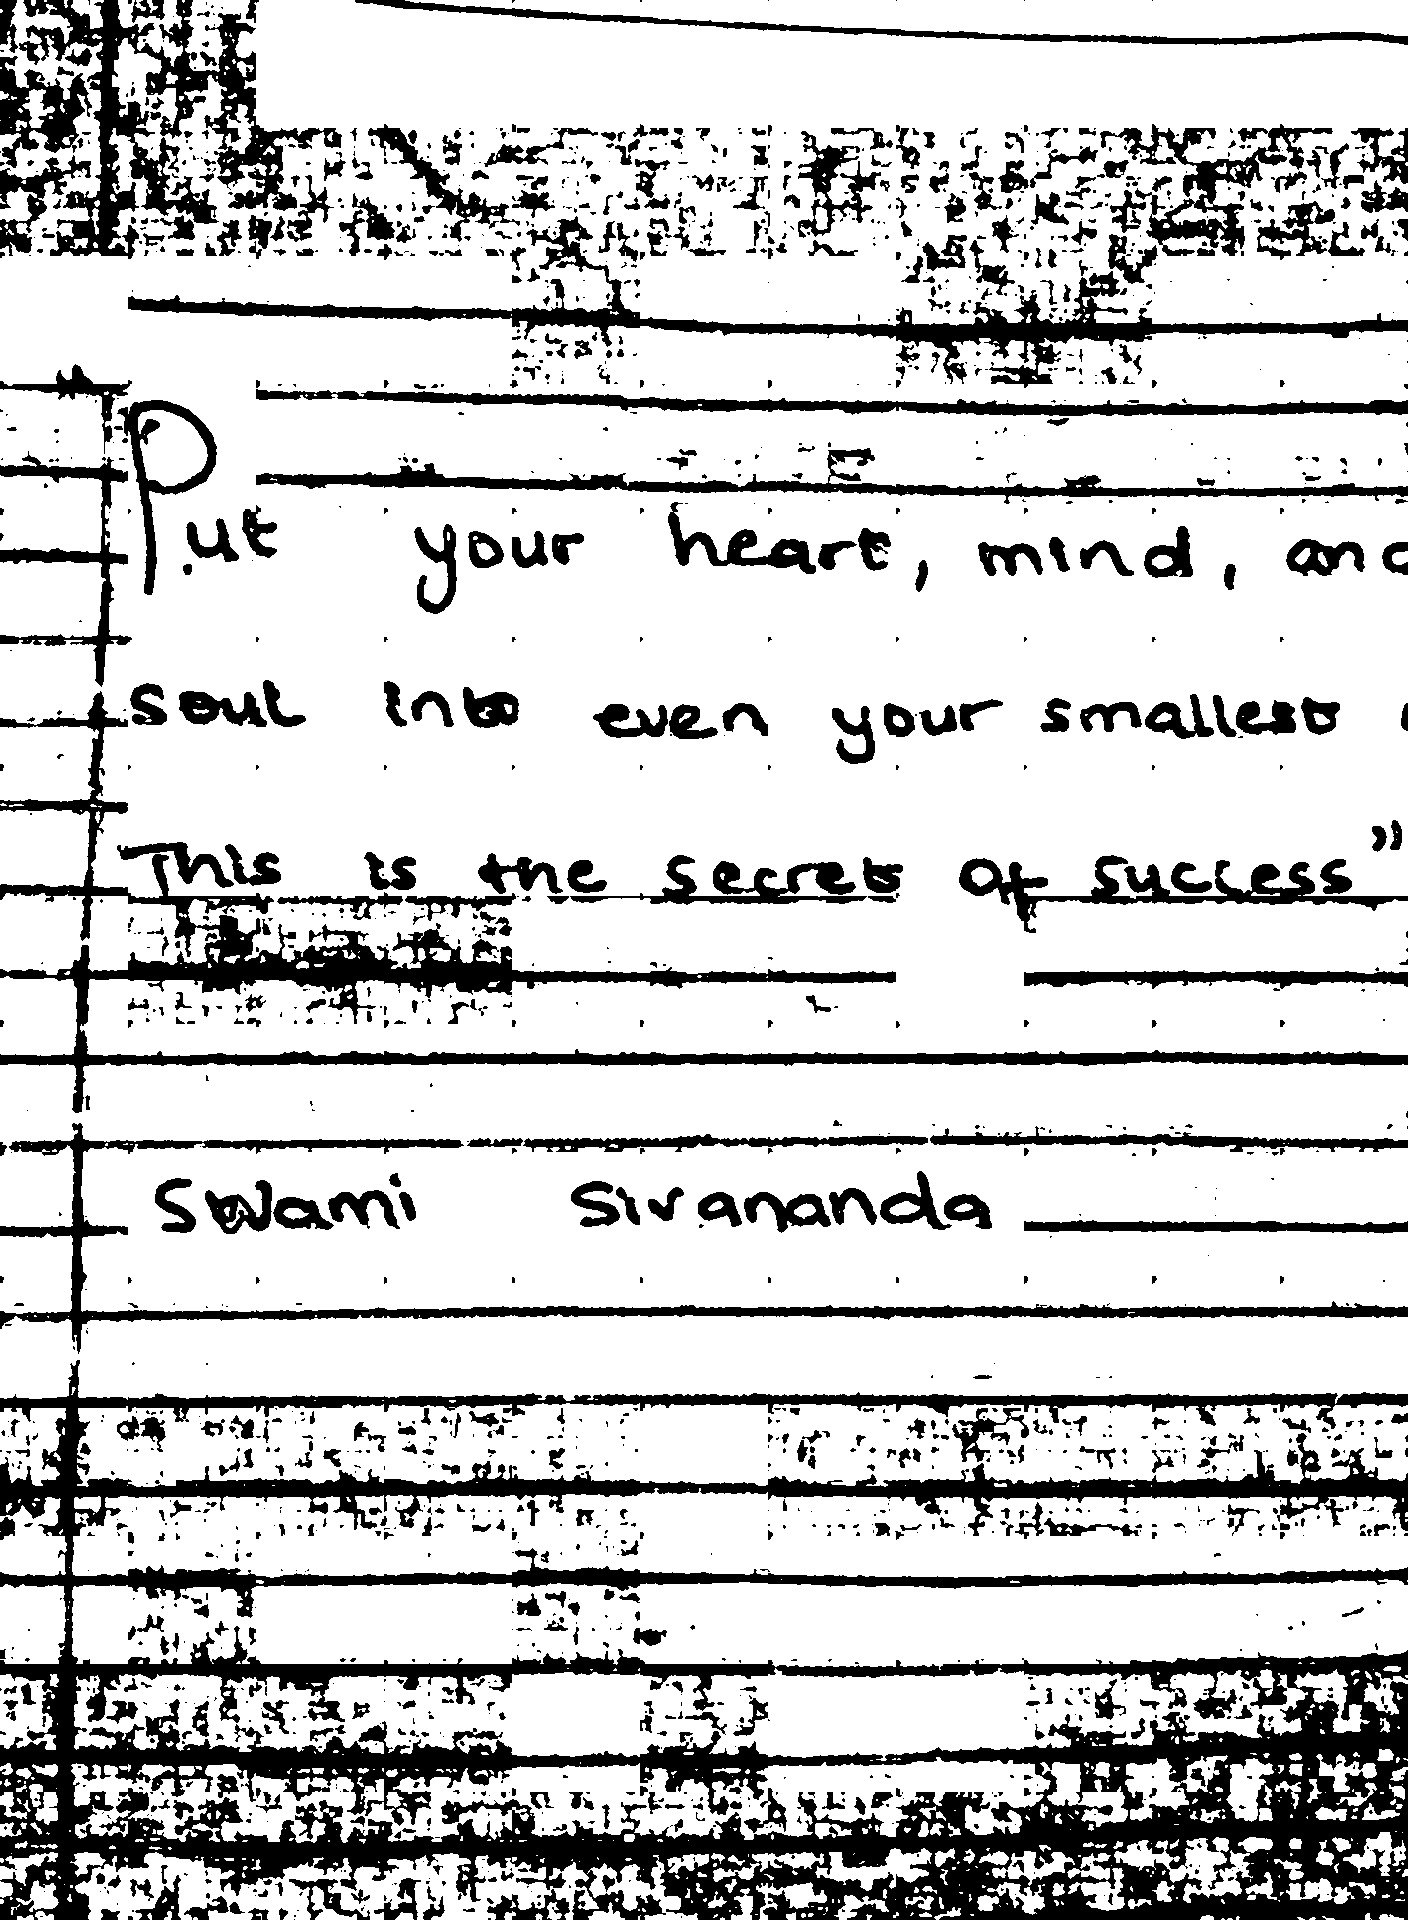 Put your heart, mind, and
soul into even your smallest
This is the secret of success”
Swami Sivananda